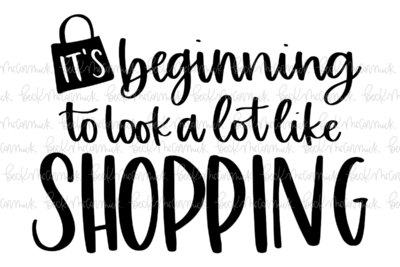 IT'S beginning
to look a lot like
SHOPPING